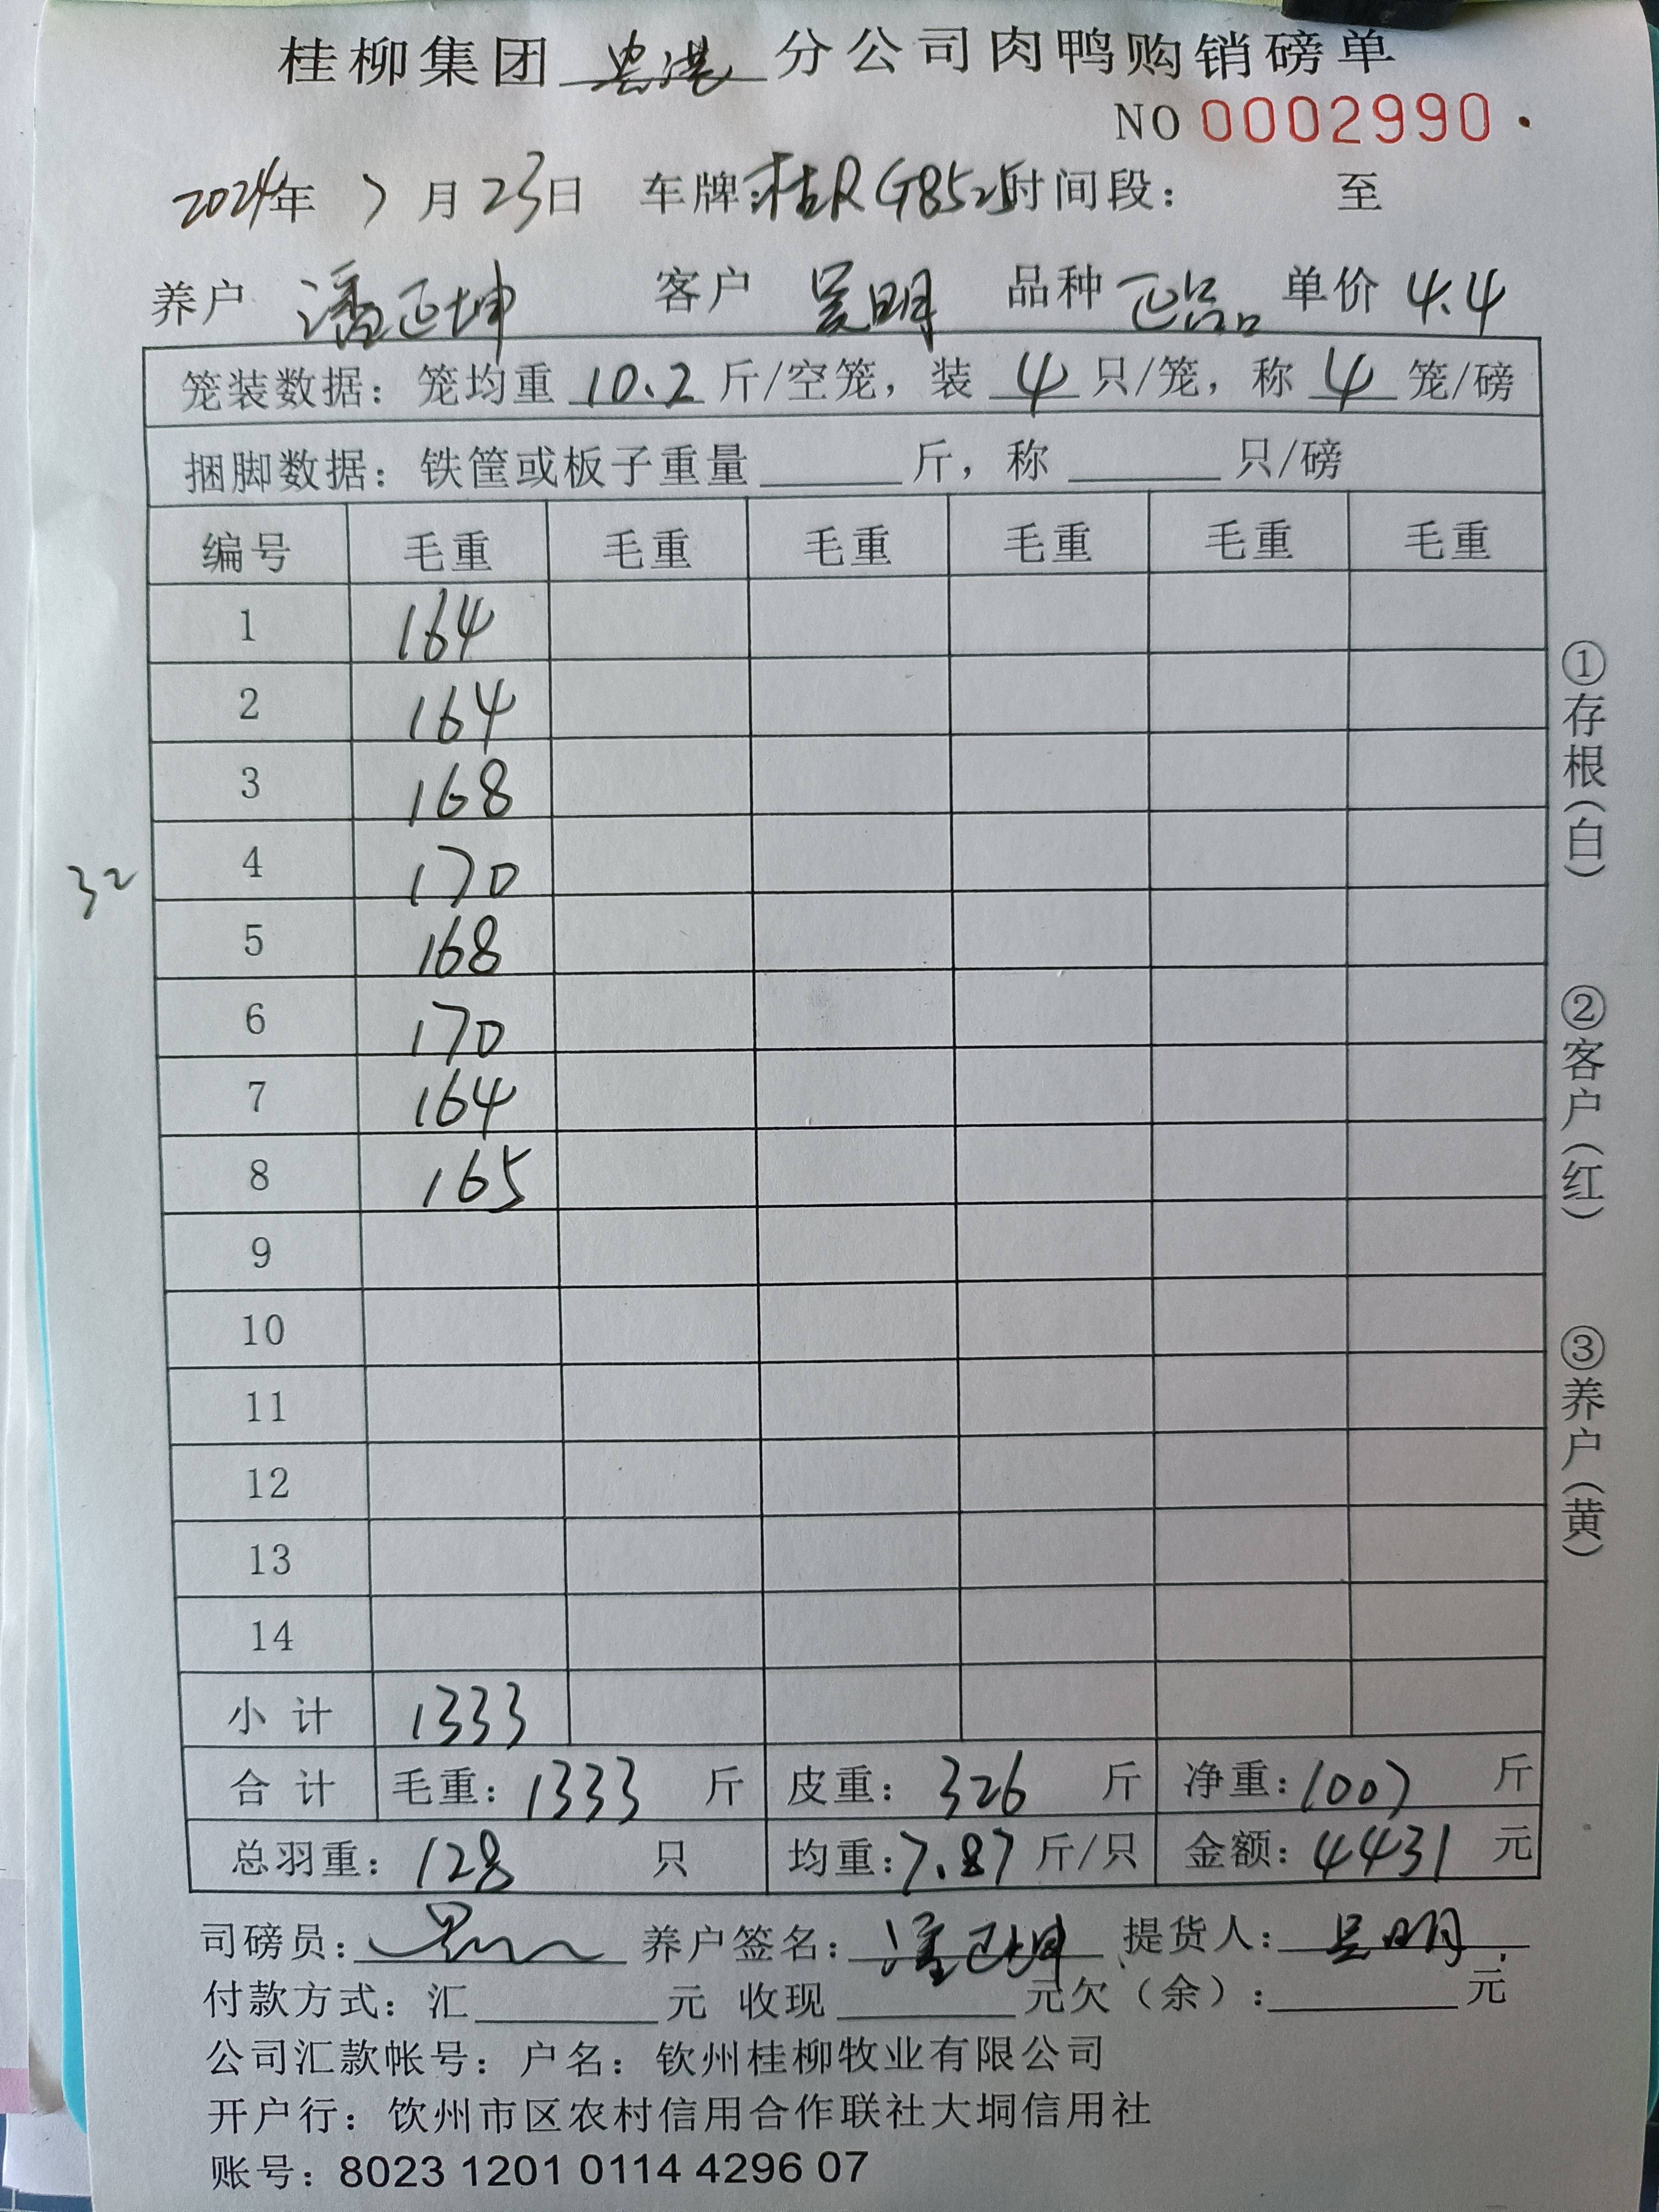 桂柳集团 贵港 分公司肉鸭购销磅单
NO 0002990
2024年 7月23日 车牌:桂R G8525 时间段: 至
养户 潘延坤 客户 吴明 品种 正品 单价 4.4
笼装数据: 笼均重 10.2 斤/空笼, 装 4 只/笼, 称 4 笼/磅
捆脚数据: 铁筐或板子重量 斤, 称 只/磅
编号 毛重 毛重 毛重 毛重 毛重 毛重
1 164
2 164
3 168
4 170
32
5 168
6 170
7 164
8 165
9
10
11
12
13
14
小计 1333
合计 毛重: 1333 斤 皮重: 326 斤 净重: 1007 斤
总羽重: 128 只 均重: 7.87 斤/只 金额: 4431 元
司磅员: 养户签名: 潘延坤 提货人: 吴明
付款方式: 汇 元 收现 元欠(余): 元
公司汇款帐号: 户名: 钦州桂柳牧业有限公司
开户行: 钦州市区农村信用合作联社大垌信用社
账号: 8023 1201 0114 4296 07
①存根(白)
②客户(红)
③养户(黄)